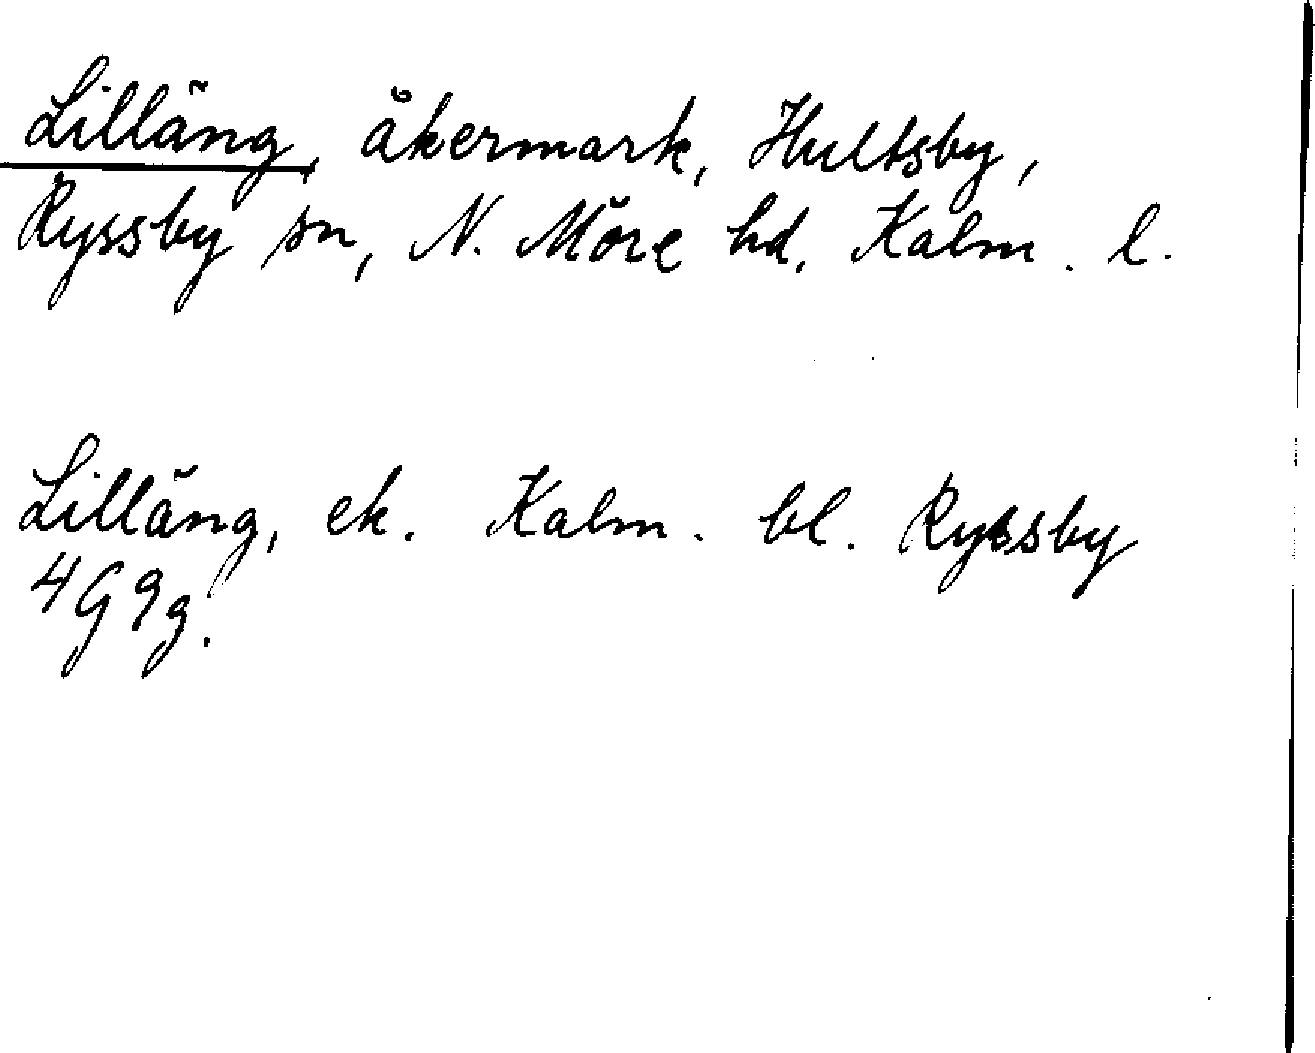 Lilläng, åkermark, Hultsby,
Ryssby sn, N. Möre hd. Kalm. l.
Lilläng, ek. Kalm. bl. Ryssby
4G9g.